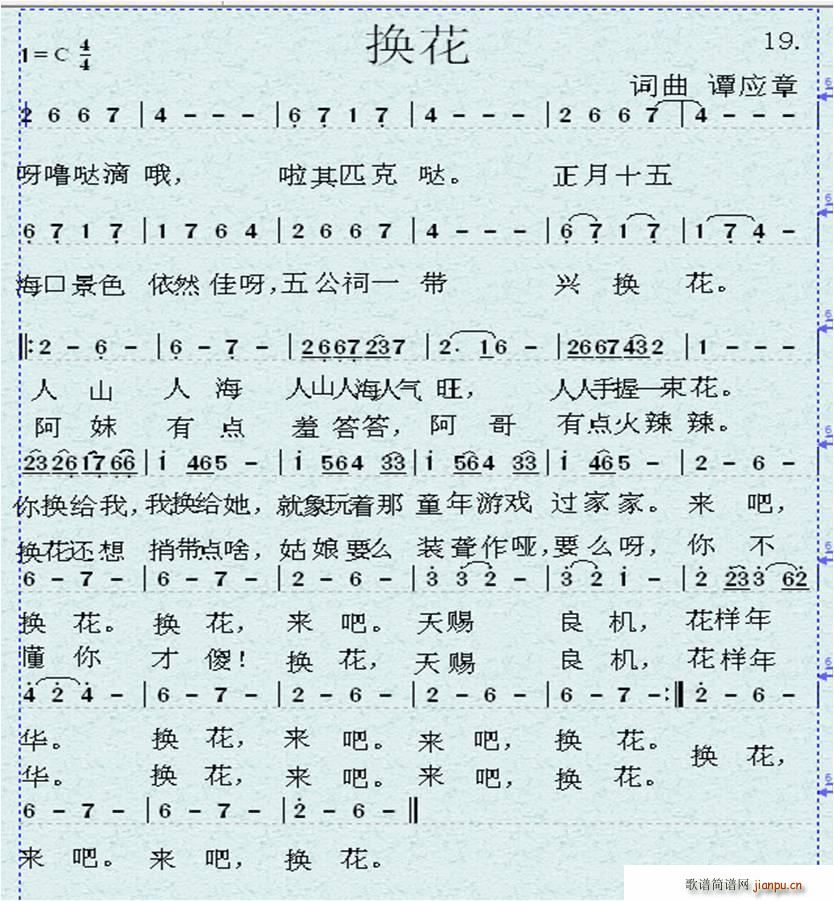 换花
19.
1=C 4/4
词曲 谭应章
2 6 6 7 | 4 - - - | 6 7 1 7 | 4 - - - | 2 6 6 7 | 4 - - -
呀噜哒滴 哦， 啦其匹克 哒。 正月十五
6 7 1 7 | 1 7 6 4 | 2 6 6 7 | 4 - - - | 6 7 1 7 | 1 7 4 -
海口景色 依然佳呀，五公祠一 带 兴换 花。
‖: 2 - 6 - | 6 - 7 - | 2667237 | 2· 16 - | 2667432 | 1 - - -
人 山 人 海 人山人海人气 旺， 人人手握一束花。
阿 妹 有 点 羞答答，阿 哥 有点火辣 辣。
23261766 | i 465 - | i 564 33 | i 564 33 | i 465 - | 2 - 6 -
你换给我，我换给她，就象玩着那 童年游戏 过家家。来 吧，
换花还想 捎带点啥，姑娘要么 装聋作哑，要么呀，你 不
6 - 7 - | 6 - 7 - | 2 - 6 - | 3 3 2 - | 3 2 i - | 2 233 62
换 花。换 花，来 吧。天赐 良机，花样年
懂 你 才 傻！换 花，天赐 良机，花样年
4 2 4 - | 6 - 7 - | 2 - 6 - | 2 - 6 - | 6 - 7 - :‖ 2 - 6 -
华。 换 花，来 吧。来 吧，换 花。换 花，
华。 换 花，来 吧。来 吧，换 花。
6 - 7 - | 6 - 7 - | 2 - 6 - ‖
来 吧。来 吧，换 花。
歌谱简谱网 jianpu.cn